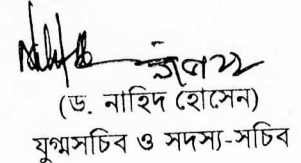 (ড. নাহিদ হোসেন)
যুগ্মসচিব ও সদস্য-সচিব